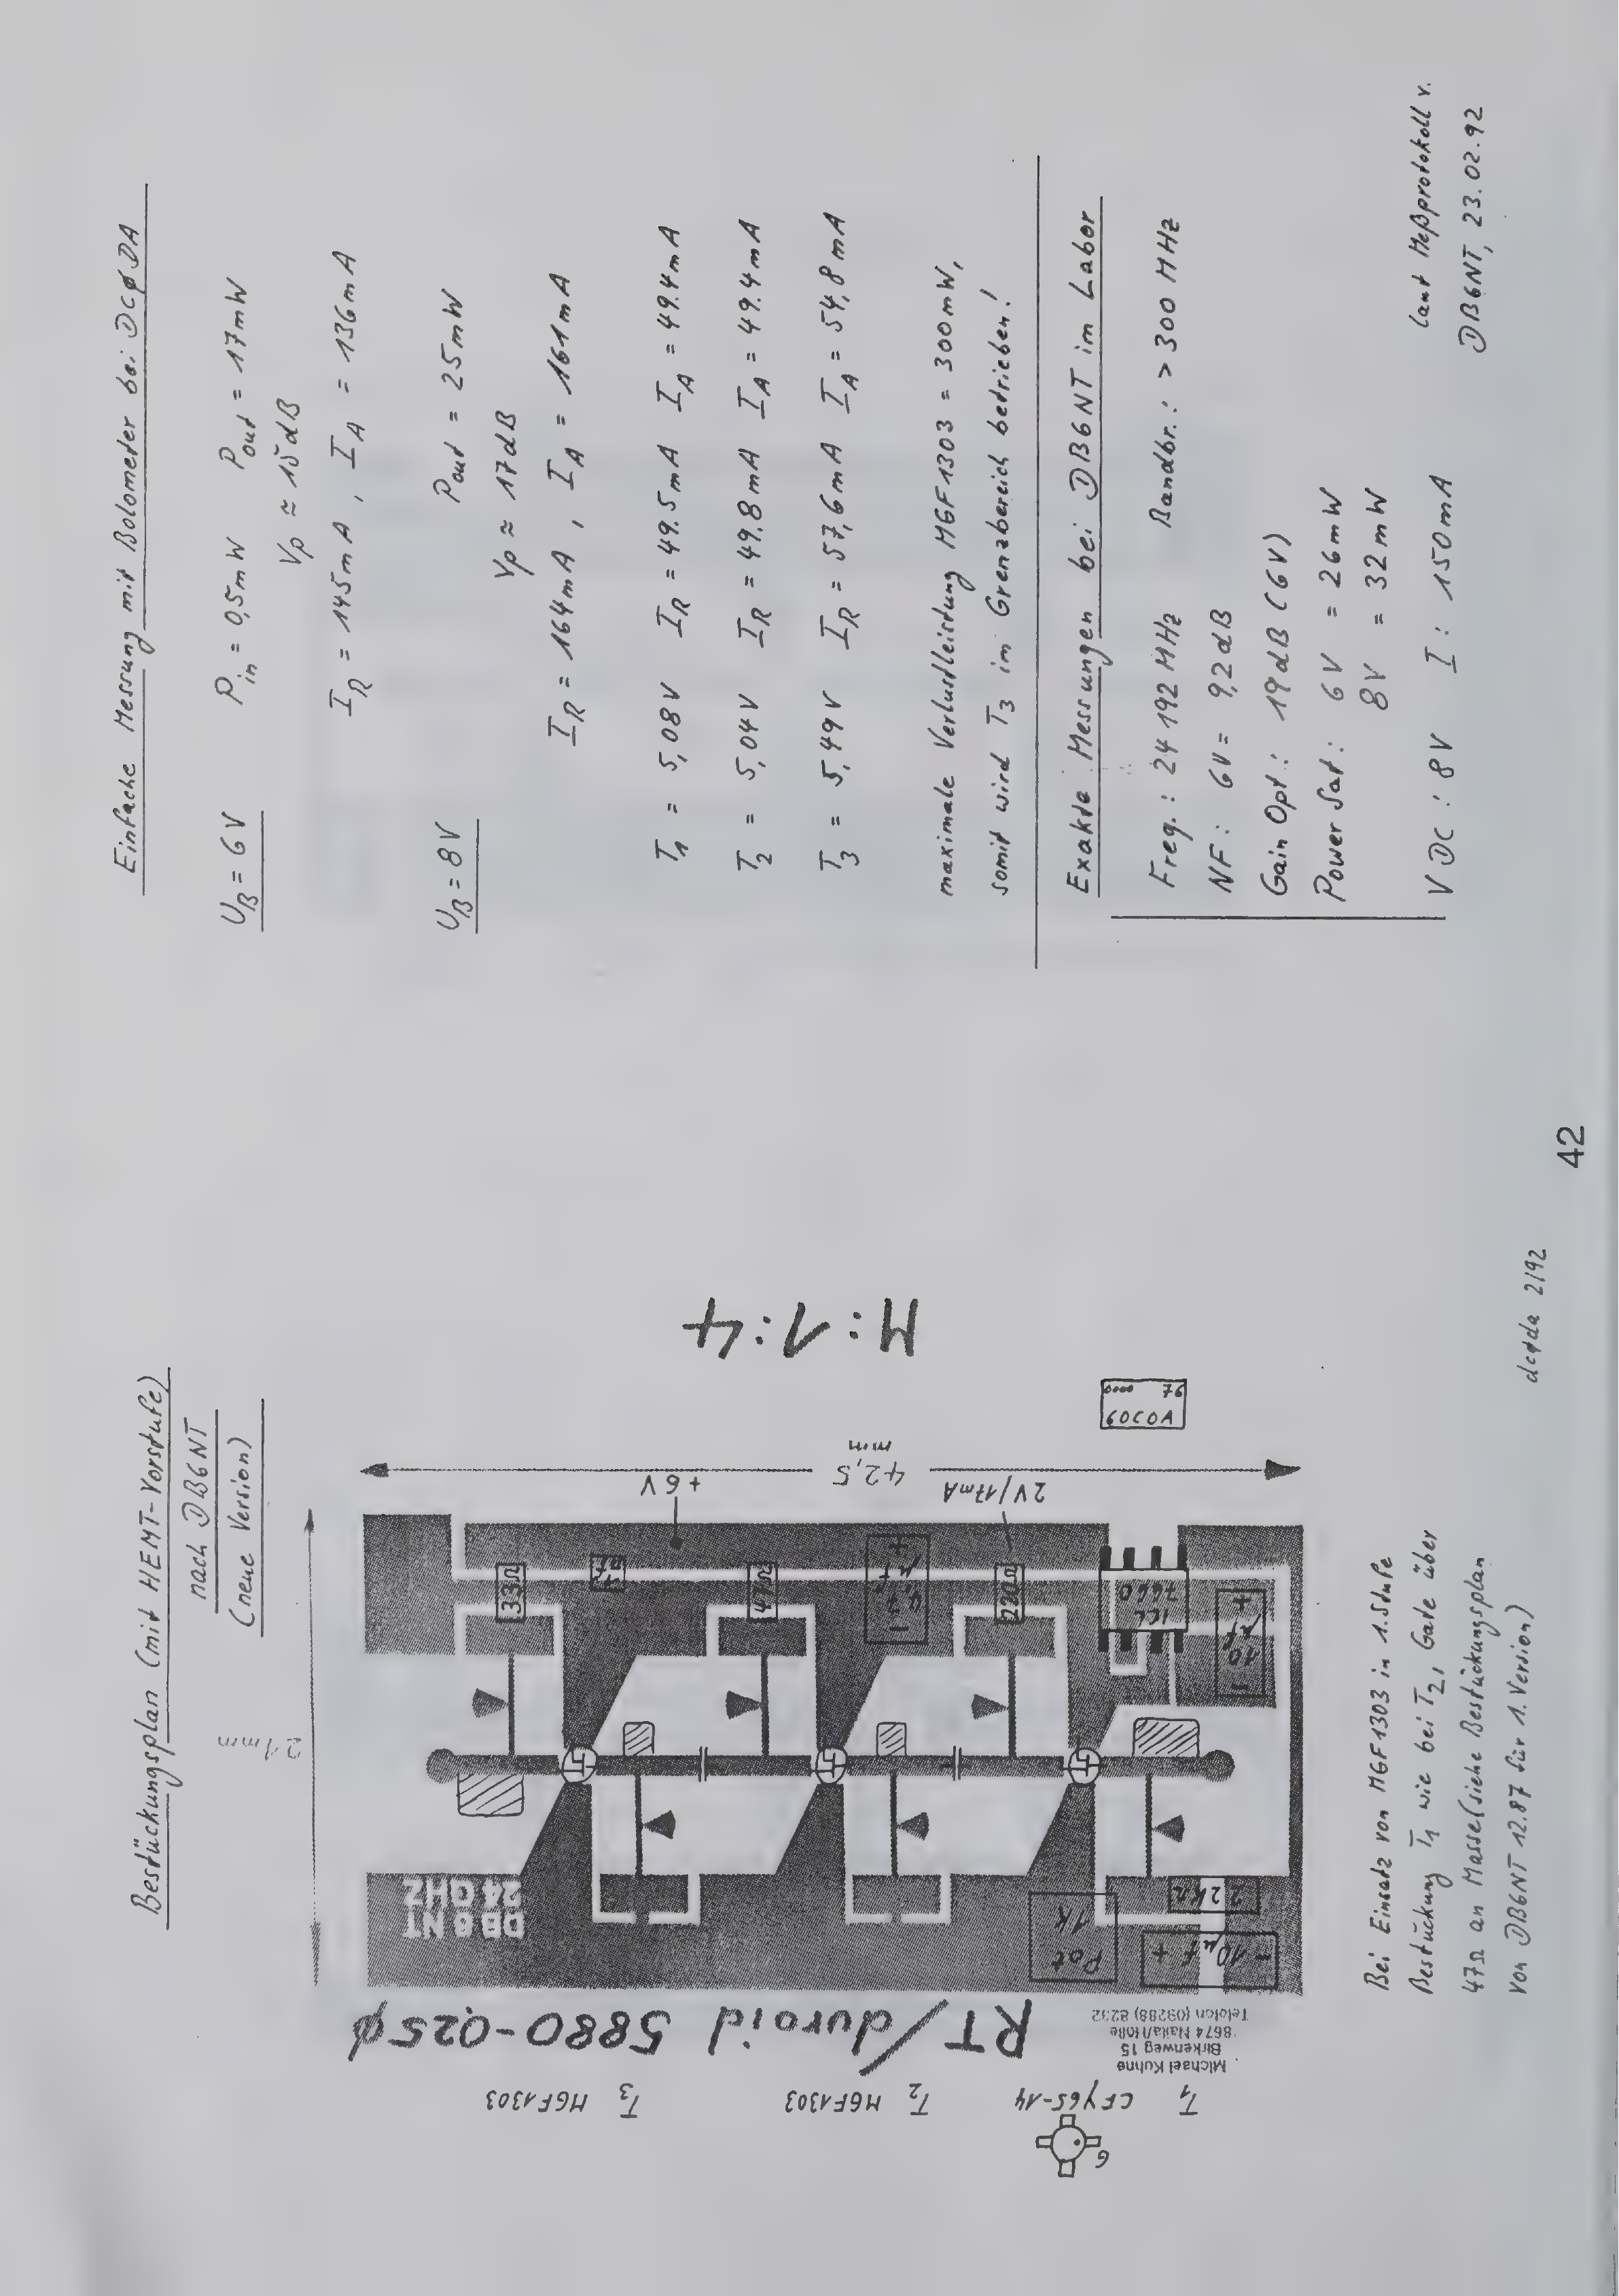 Bestückungsplan (mit HEMT-Vorstufe)
nach DB6NT
(neue Version)
21mm
DB6NT
24 GHZ
33Ω
47Ω
4,7µF
220Ω
ICL
7660
- 10µF +
+6V
42,5
mm
2V/17mA
M:1:4
Pot
1K
2,2KΩ
- 10µF +
RT/duroid 5880-025ø
Michael Kuhne
Birkenweg 15
8674 Naila/Hölle
Telefon (09288) 8232
T1 CFY65-14
T2 MGF1303
T3 MGF1303
G
Bei Einsatz von MGF1303 in 1.Stufe
Bestückung T1 wie bei T2, Gate über
47Ω an Masse (siehe Bestückungsplan
von DB6NT 12.87 für 1.Version)
dcøda 2/92
42
Einfache Messung mit Bolometer bei DCøDA
UB = 6V Pin = 0,5mW Pout = 17mW
Vp ≈ 15dB
IR = 145mA , IA = 136mA
UB = 8V Pout = 25mW
Vp ≈ 17dB
IR = 164mA , IA = 161mA
T1 = 5,08V IR = 49.5mA IA = 49.4mA
T2 = 5,04V IR = 49,8mA IA = 49.4mA
T3 = 5,49V IR = 57,6mA IA = 54,8mA
maximale Verlustleistung MGF1303 = 300mW,
somit wird T3 im Grenzbereich betrieben!
Exakte Messungen bei DB6NT im Labor
Freq.: 24192 MHz Bandbr.: > 300 MHz
NF: 6V = 9,2dB
Gain Opt.: 19dB (6V)
Power Sat.: 6V = 26mW
8V = 32mW
VDC: 8V I: 150mA
laut Meßprotokoll v.
DB6NT, 23.02.92